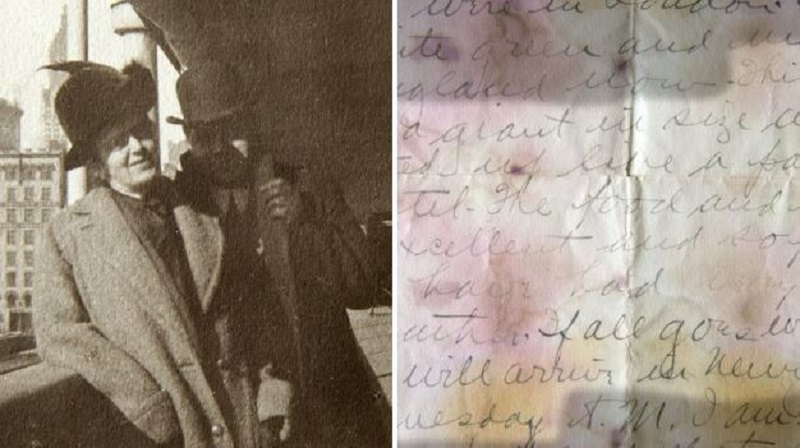 were in London.
ite green and
gland now. Thi
a giant in size a
ed up like a
tel. The food and
xcellent and so
have had
If all goes w
will arrive in New
uesday A.M. I am